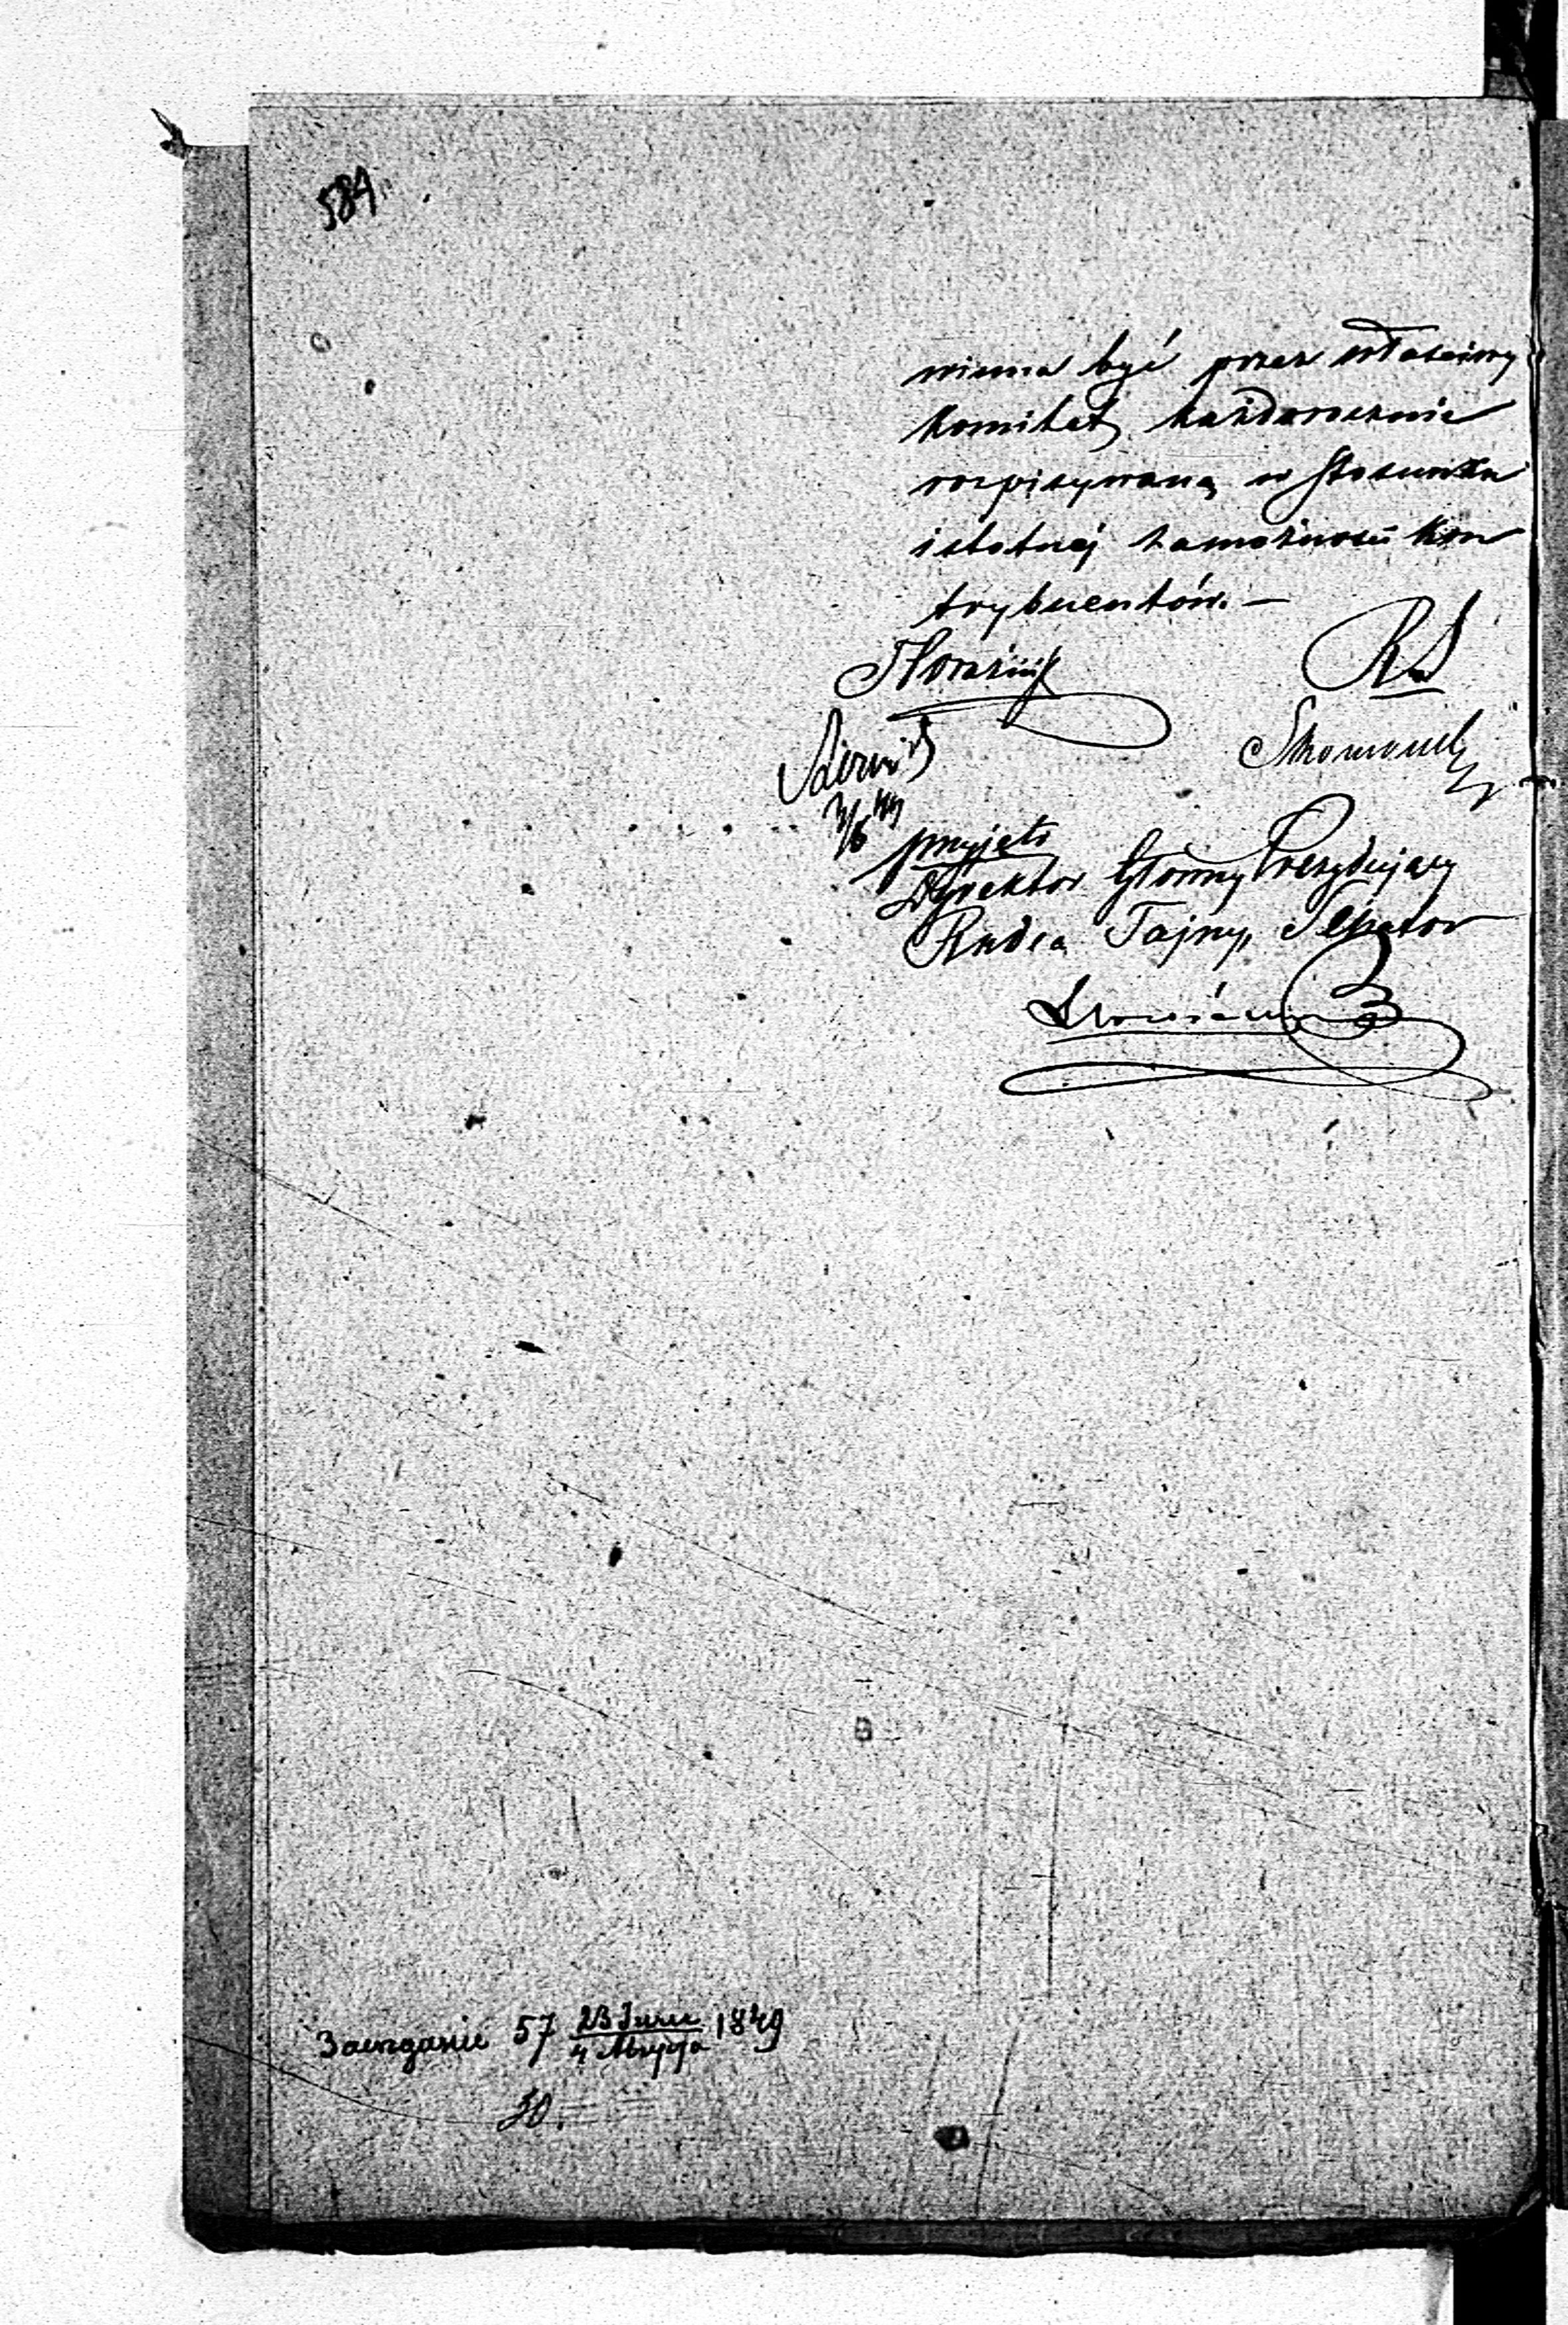 584.
winna być przez właściwy
komitet, każdorocznie
rozpisywaną w stosunku
istotnéj zamożności kon
trybuentów. —
RS
3/6 49
przyjęto
Dyrektor Główny Prezydujący
Radca Tajny, Senator
57 23 1849
30.